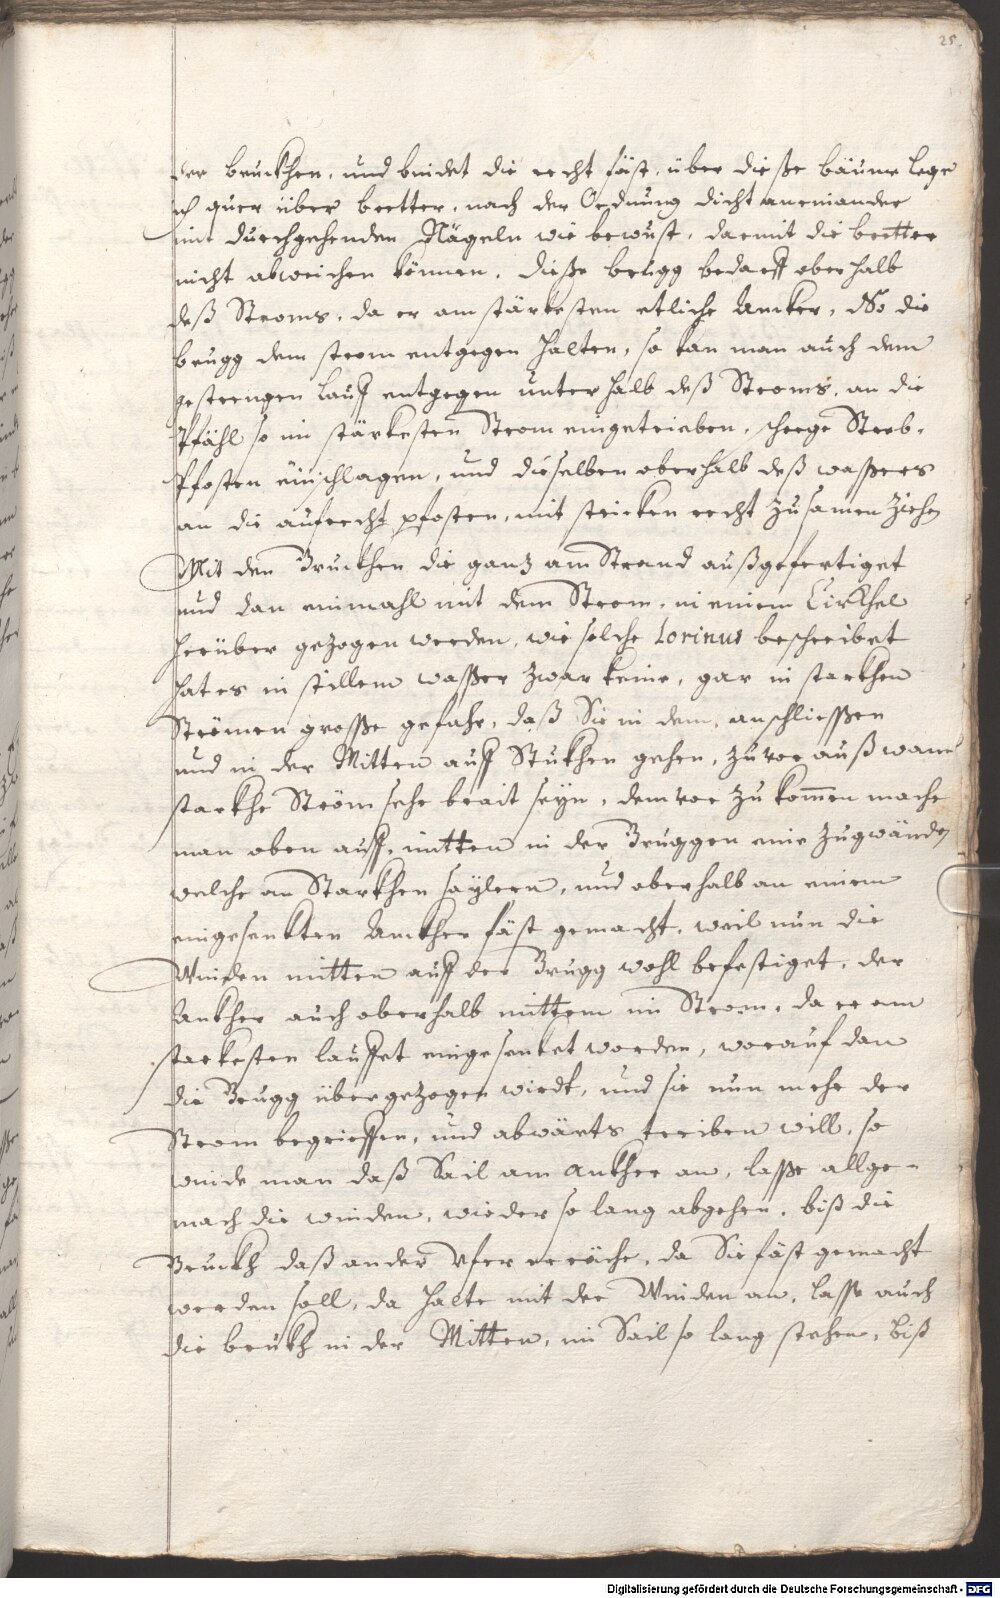 25.
der bruckhen, und bindet die recht fäst, über dieße bäume lege
ich quer über bretter, nach der Ordnung dicht aneinander
mit durchgehenden Nägeln wie bewust, darmit die bretter
nicht abweichen können, dieße brugg bedarff oberhalb
deß Stroms, da er am stärkesten etliche Ancker, So die
brugg dem strom entgegen halten, so kan man auch dem
gestrengen lauff entgegen unterhalb deß Stroms, an die
Pfähl so im stärkesten Strom eingetrieben, schrege Streb-
Pfosten einschlagen, und dieselben oberhalb deß waßers
an die aufrecht pfosten, mit stricken recht zusamen ziehen
Mit den Bruckhen die ganz am Strand außgefertiget
und dan einmahl mit dem Strom, in einem Cirkhel
herüber gezogen werden, wie solche Lorinus beschreibet
hat es in stillem waßer zwar keine, gar in starkhen
Strömen große gefahr, daß Sie in dem anschließen
und in der Mitten auff Stukhen gehen, zuvor auß wann
starkhe Ström sehr brait seyn, dem vor zu kommen mache
man oben auff, mitten in der Bruggen eine Zugwänden
welche an Starkhen saylern, und oberhalb an einem
eingesenkten Anckher fäst gemacht, weil nun die
Winden mitten auff der Brugg wohl befestiget, der
Ankher auch oberhalb mitten im Strom, da er am
starkesten lauffet eingesenket worden, worauf dan
die Brugg übergezogen wirdt, und sie nun mehr der
Strom begrieffen, und abwärts treiben will, so
winde man daß Sail am Ankher an, laße allge-
mach die winden, wieder so lang abgehen, biß die
Bruckh daß ander Ufer erräche, da Sie fäst gemacht
werden soll, da halte mit der Winden an, lasse auch
die brukh in der Mitten, im Sail so lang stehen, biß
Digitalisierung gefördert durch die Deutsche Forschungsgemeinschaft - DFG